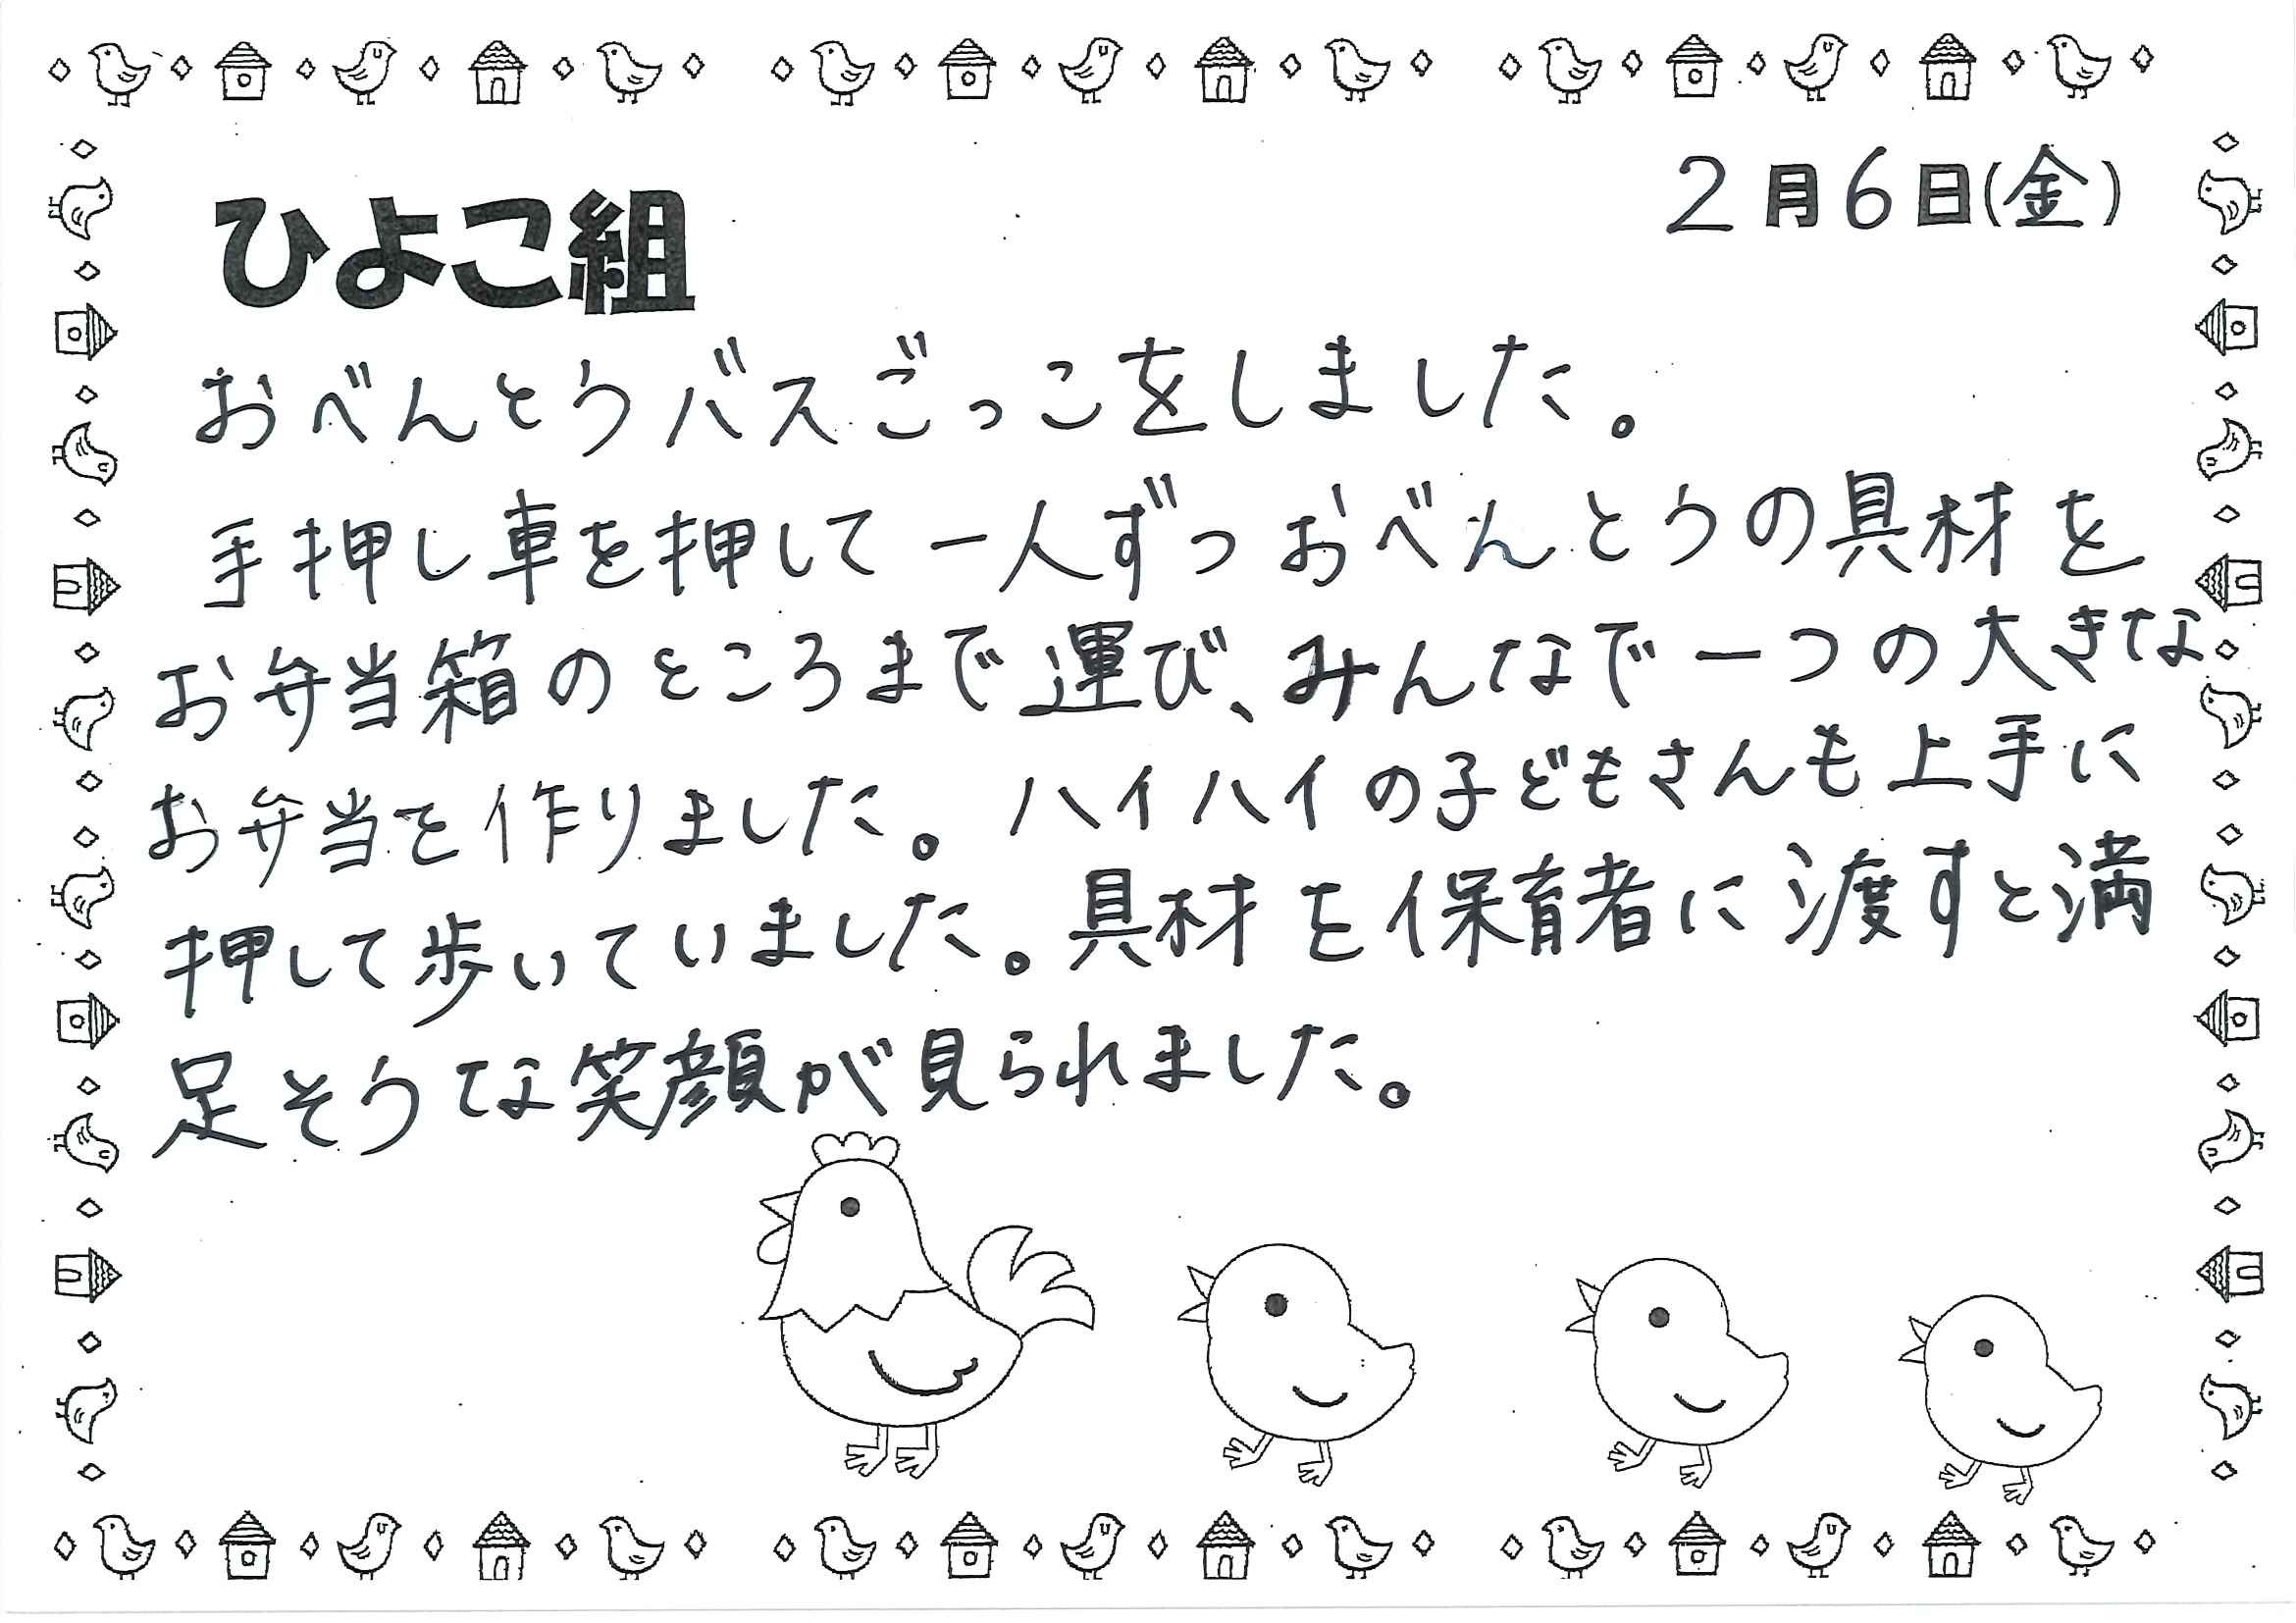 2月6日(金)
ひよこ組
おべんとうバスごっこをしました。
手押し車を押して一人ずつおべんとうの具材を
お弁当箱のところまで運び、みんなで一つの大きな
お弁当を作りました。ハイハイの子どもさんも上手に
押して歩いていました。具材を保育者に渡すと満
足そうな笑顔が見られました。